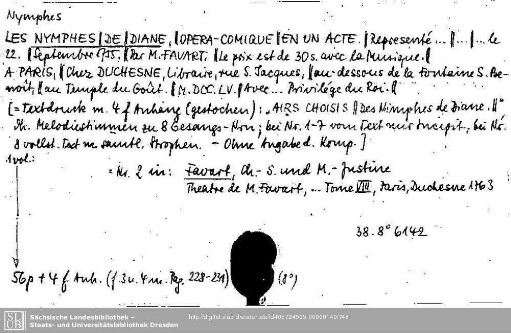 Nymphes
LES NYMPHES | DE | DIANE, || OPERA-COMIQUE || EN UN ACTE. || Representé ... || ... || ... le
22. || Septembre 1755. || Par M. FAVART. || Le prix est de 30 s. avec la Musique. ||
A PARIS, || Chez DUCHESNE, Libraire, rue S. Jacques, || au-dessous de la Fontaine S. Be-
noît, || au Temple du Goût. || M. DCC. LV. || Avec ... Privilège du Roi. ||
[= Textdruck m. 4 f Anhang (gestochen): „AIRS CHOISIS || Des Nimphes de Diane. ||"
Melodiestimmen zu 8 Gesangs-Nrn; bei No. 1-7 vom Text nur Incipit, bei No.
8 vollst. Text m. sämtl. Strophen. - Ohne Angabe d. Komp.]
1 vol:
= Nr. 2 in: Favart, Ch.- S. und M.- Justine
Théatre de M. Favart, ... Tome VIII, Paris, Duchesne 1763
38. 8° 6142
56p + 4 f. Anh. (f. 3 u. 4 m. Pag. 228-231) (8°)
SLUB
Sächsische Landesbibliothek –
Staats- und Universitätsbibliothek Dresden